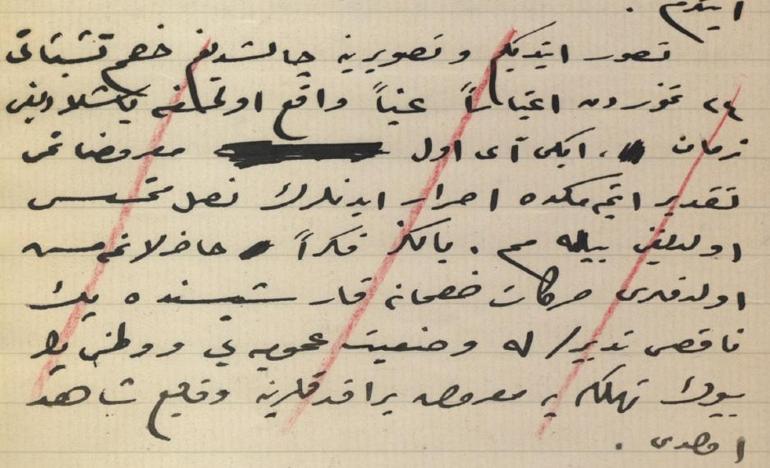 ایتدم .
تصور ایتدیكم و تصویرینه چالشدیغم خصم تشبثاتی
٢٤ تموزدن اعتباراً عیناً واقع اولمغه باشلادیغی
زمان ، ایكی آی اول معروضاتمی
تقدیر ایتمكده اصرار ایدنلرك نصل متحسس
اولدیغنی بیلمم . یالكز فكراً حاضرلانمامش
اولدقلری حركات خصمانه قارشیسنده پك
ناقص تدبیرلرله وضعیت عمومیه یی و وطنی پك
بیوك تهلكه یه معروض براقدقلرینه وقایع شاهد
اولدی .